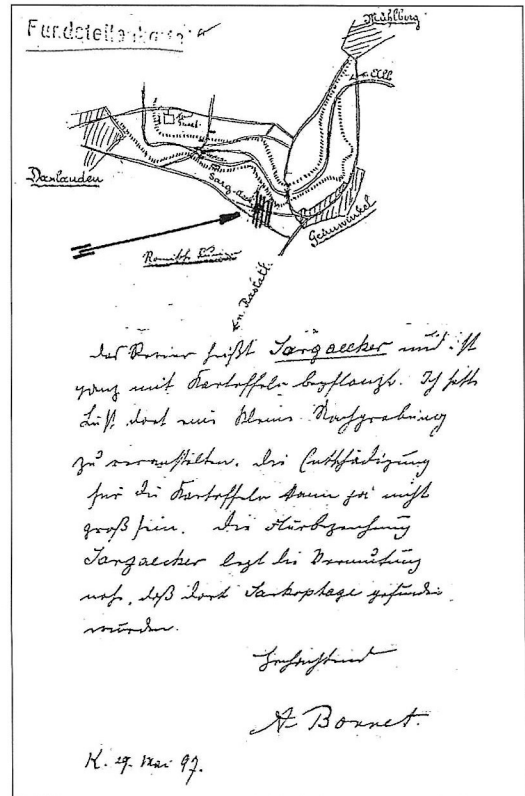 Fundstellenkarte
Mühlberg
Alb
Daxlanden
Sarg-äck
Grünwinkel
Römische Ruine
n. Rastatt.
das Revier heißt Sargaecker und ist
ganz mit Kartoffeln bepflanzt. Ich hätte
Lust, dort eine kleine Nachgrabung
zu veranstalten. Die Entschädigung
für die Kartoffeln kann ja nicht
groß sein. Die Flurbezeichnung
Sargaecker legt die Vermutung
nahe, daß dort Sarkophage gefunden
wurden.
Hochachtend
A. Bonnet.
K. 29. Mai 97.